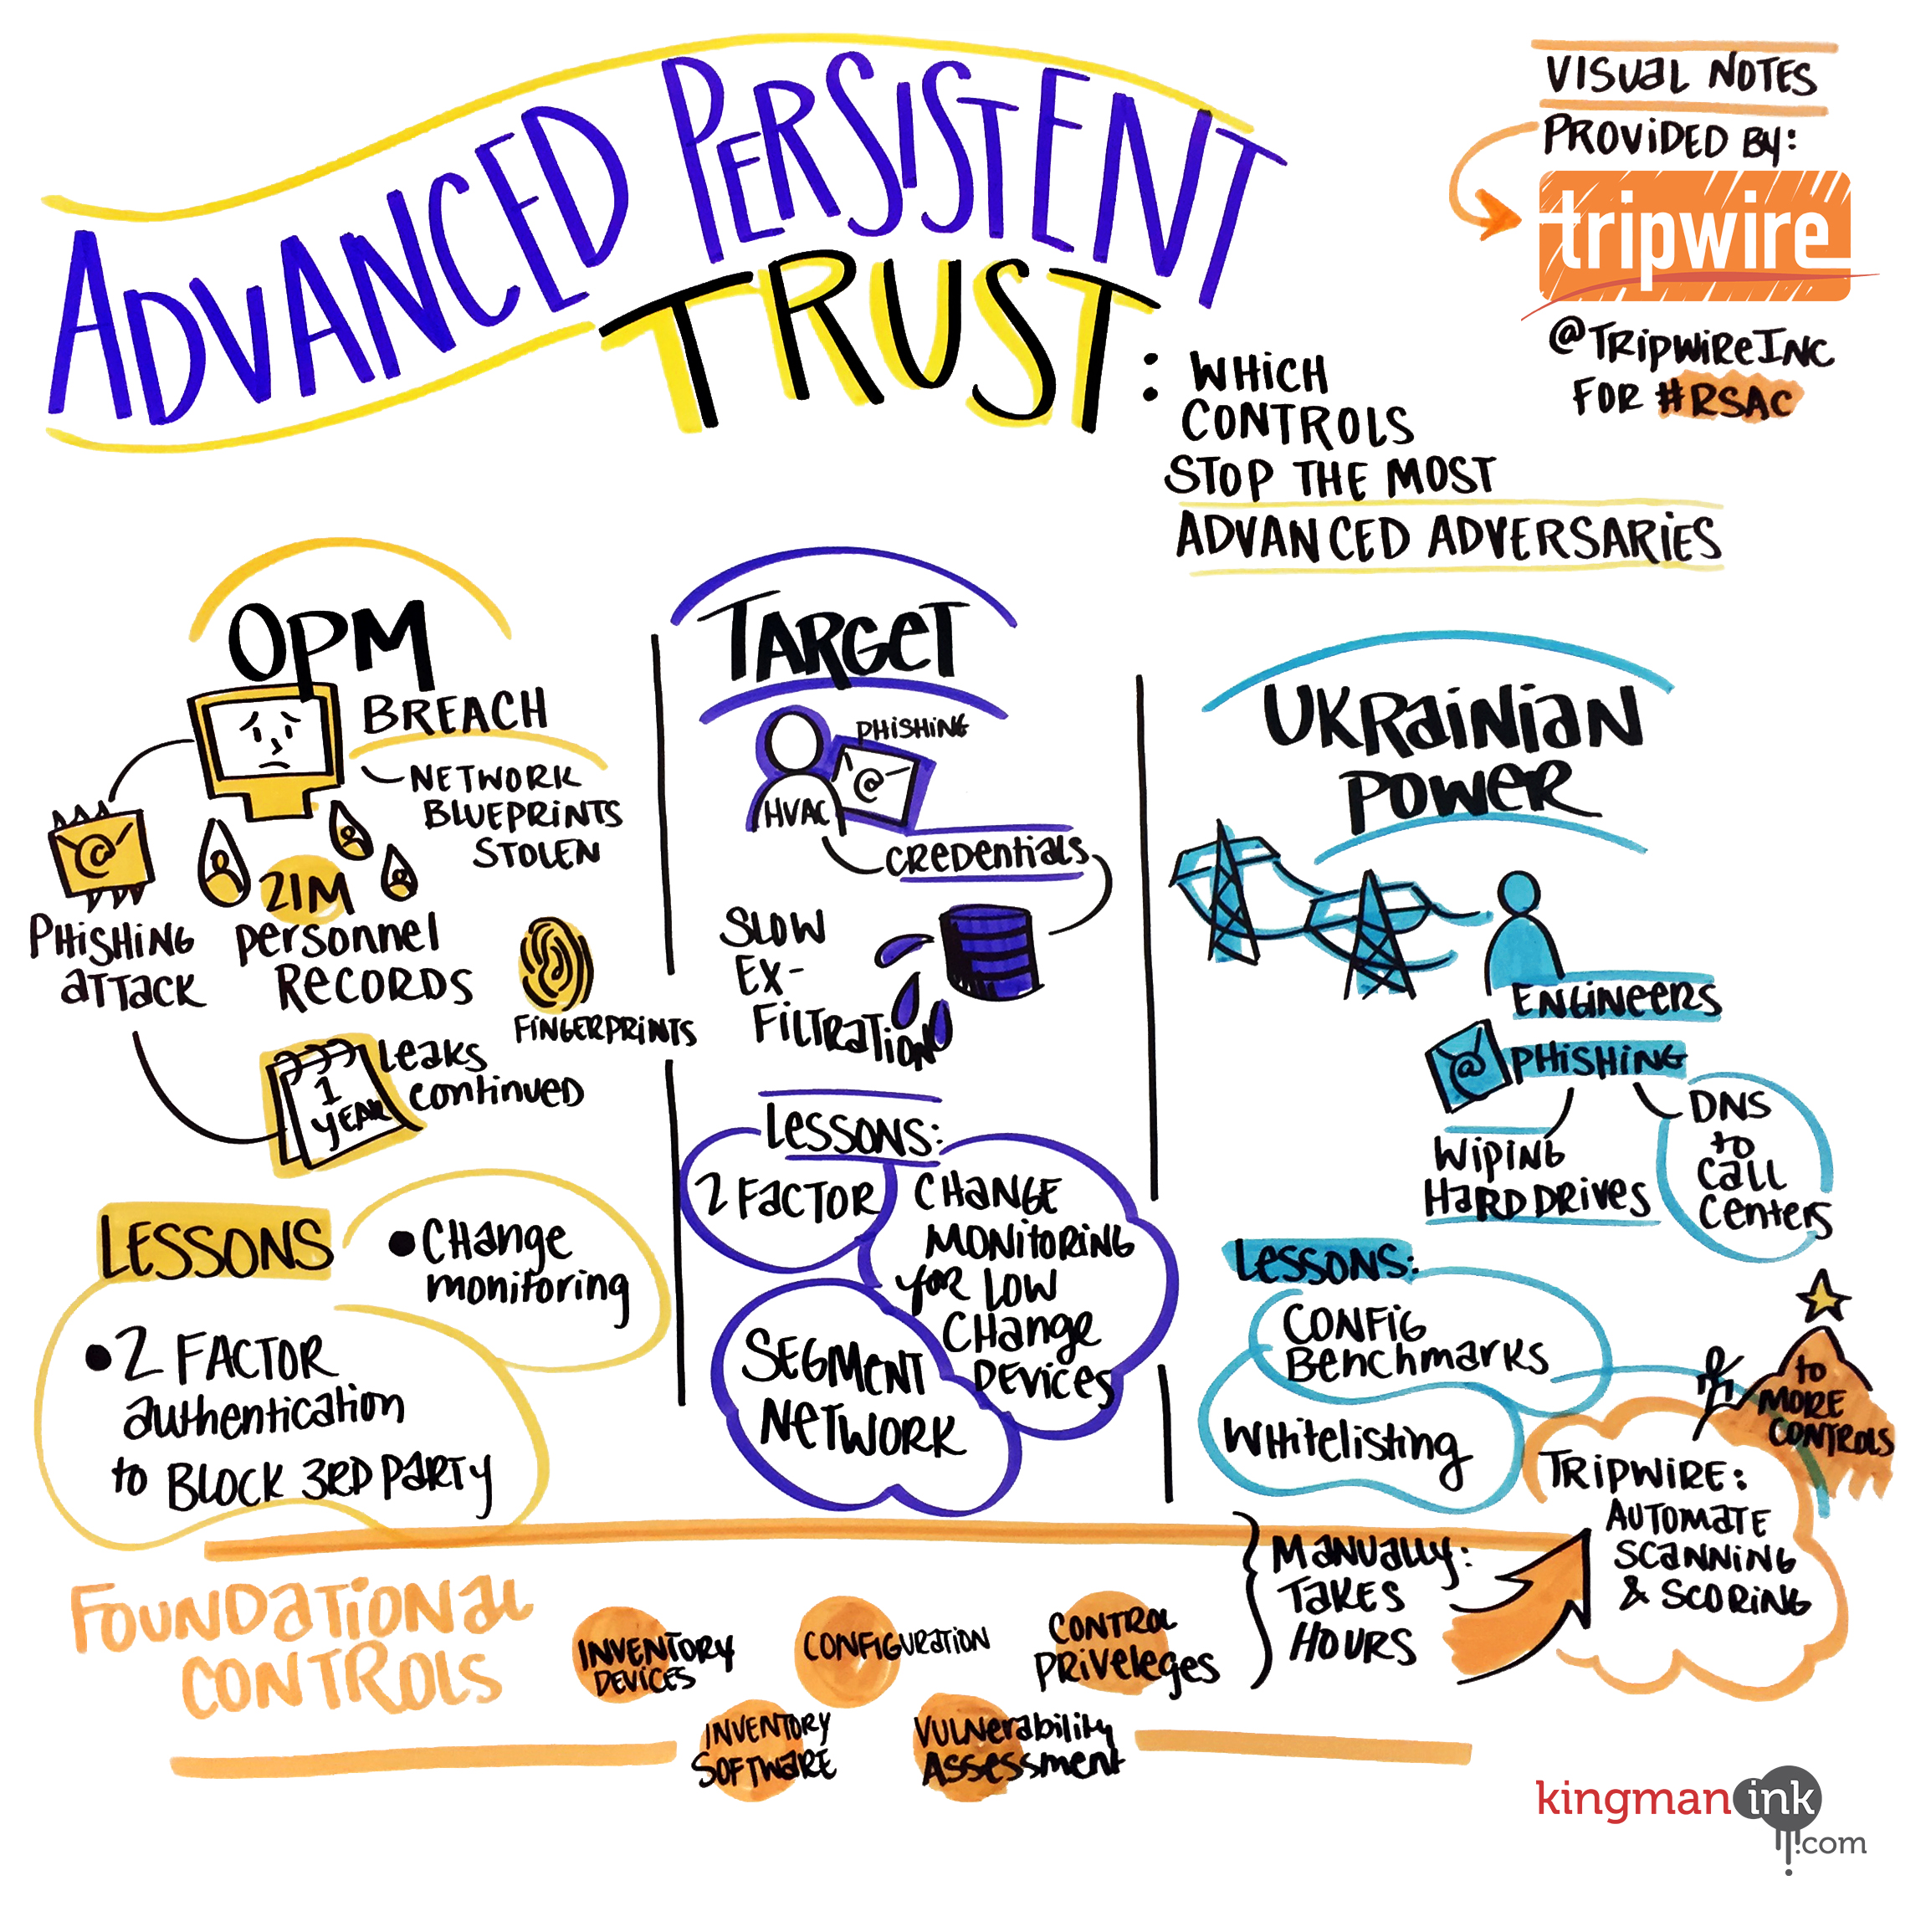 ADVANCED PERSISTENT
TRUST:
WHICH
CONTROLS
STOP THE MOST
ADVANCED ADVERSARIES
VISUAL NOTES
PROVIDED BY:
tripwire
@TRIPWIREINC
FOR #RSAC
OPM
BREACH
NETWORK
BLUEPRINTS
STOLEN
@
PHISHING
ATTACK
21M
PERSONNEL
RECORDS
FINGERPRINTS
1
YEAR
LEAKS
CONTINUED
LESSONS
• CHANGE
MONITORING
• 2 FACTOR
AUTHENTICATION
TO BLOCK 3RD PARTY
TARGET
PHISHING
@
HVAC
CREDENTIALS
SLOW
EX-
FILTRATION
LESSONS:
2 FACTOR
CHANGE
MONITORING
FOR LOW
CHANGE
DEVICES
SEGMENT
NETWORK
UKRAINIAN
POWER
ENGINEERS
@
PHISHING
WIPING
HARD DRIVES
DNS
TO
CALL
CENTERS
LESSONS:
CONFIG
BENCHMARKS
WHITELISTING
TO
MORE
CONTROLS
TRIPWIRE:
AUTOMATE
SCANNING
& SCORING
MANUALLY:
TAKES
HOURS
FOUNDATIONAL
CONTROLS
INVENTORY
DEVICES
CONFIGURATION
CONTROL
PRIVELEGES
INVENTORY
SOFTWARE
VULNERABILITY
ASSESSMENT
kingman ink
.com